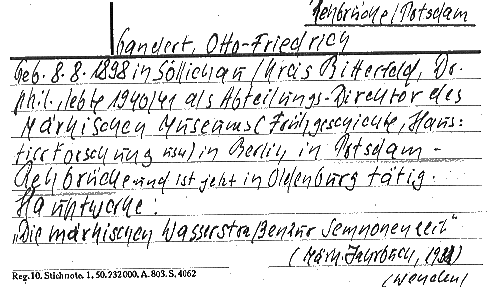 Rehbrücke/Potsdam
Gandert, Otto-Friedrich
Geb. 8.8.1898 in Söllichau/Kreis Bitterfeld, Dr.
phil., lebte 1940/41 als Abteilungs-Direktor des
Märkischen Museums (Frühgeschichte, Haus-
tierforschung usw) in Berlin, in Potsdam-
Rehbrücke und ist jetzt in Oldenburg tätig.
Hauptwerke:
„Die märkischen Wasserstraßen zur Semnonenzeit"
(Märk. Jahrbuch,
(Wenden)
Reg. 10. Stichnote. 1, 50. 232000. A. 803. S. 4062